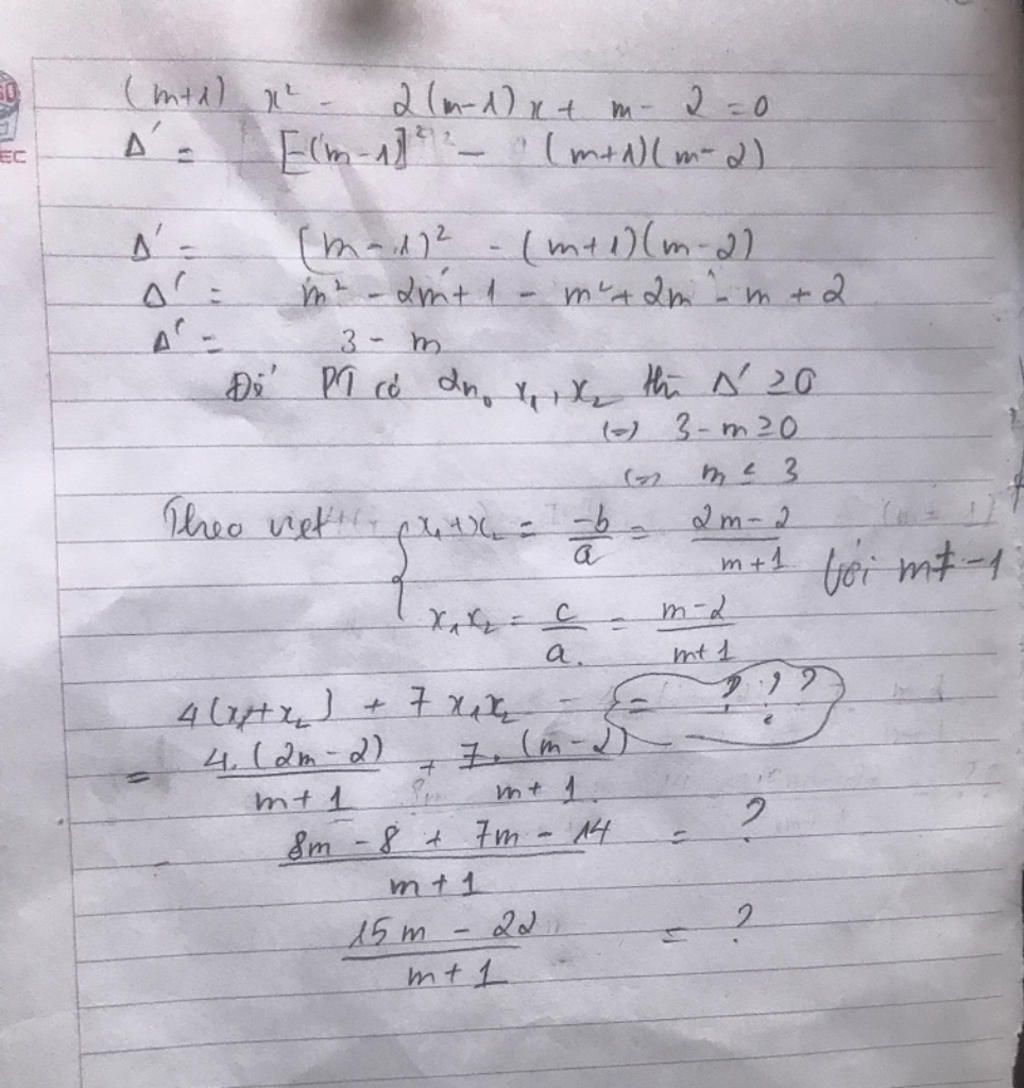 (m+1) x² - 2(m-1)x + m - 2 = 0
Δ' = [-(m-1)]² - (m+1)(m-2)
Δ' = (m-1)² - (m+1)(m-2)
Δ' = m² - 2m + 1 - m² + 2m - m + 2
Δ' = 3 - m
Để PT có 2n₀ x₁, x₂ thì Δ' ≥ 0
(=) 3 - m ≥ 0
(=) m ≤ 3
Theo viet { x₁+x₂ = -b/a = (2m-2)/(m+1) với m ≠ -1
x₁x₂ = c/a = (m-2)/(m+1)
4(x₁+x₂) + 7x₁x₂ = ? ? ?
= 4.(2m-2)/(m+1) + 7.(m-2)/(m+1)
(8m - 8 + 7m - 14)/(m+1) = ?
(15m - 22)/(m+1) = ?
EC